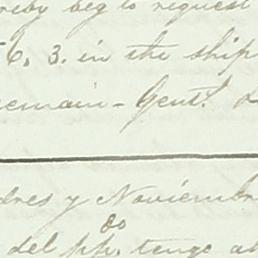 reby beg to request
6, 3. in the ship
remain - Gent.s
dres y Noviembr
del pp.do tengo a